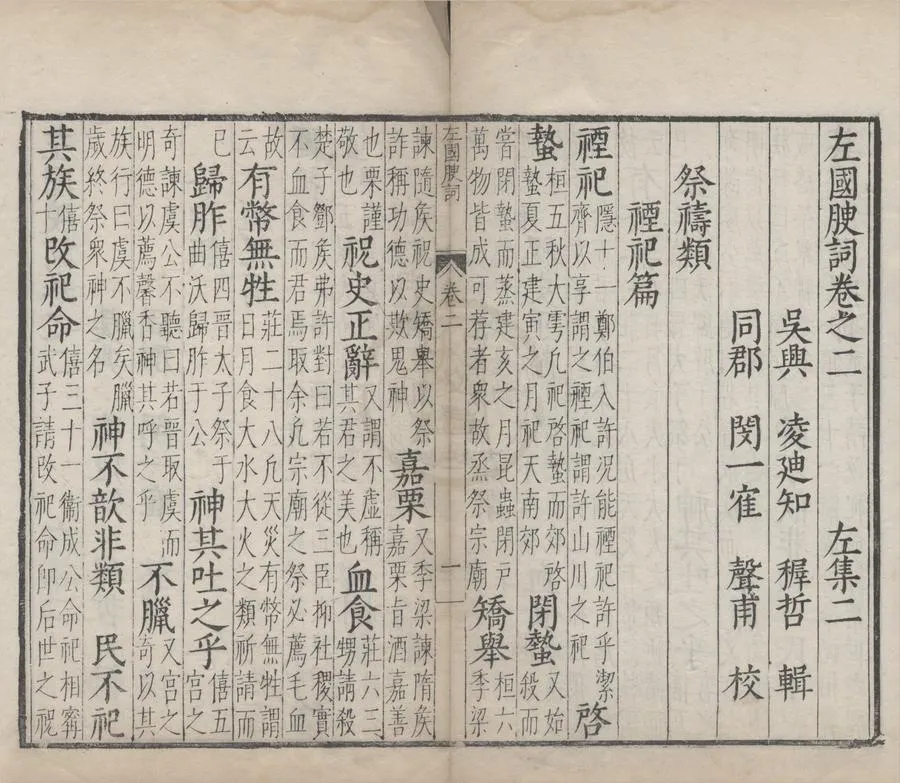 左國腴詞卷之二　左集二
吳興　凌迪知　穉哲　輯
同郡　閔一㝉　聲甫　校
祭禱類
禋祀篇
禋祀隱十一鄭伯入許況能禋祀許乎潔齊以享謂之禋祀謂許山川之祀啓
蟄桓五秋大雩凢祀啓蟄而郊啓蟄夏正建寅之月祀天南郊閉蟄又始殺而
嘗閉蟄而蒸建亥之月昆蟲閉戸萬物皆成可荐者衆故烝祭宗廟矯舉桓六季梁
左國腴詞　卷二　一
諫隨矦祝史矯舉以祭詐稱功德以欺鬼神嘉栗又季梁諫隋矦嘉栗旨酒嘉善
也栗謹敬也祝史正辭又謂不虛稱其君之美也血食莊六三甥請殺
楚子鄧矦弗許對曰若不從三臣抑社稷實不血食而君焉取余凢宗廟之祭必薦毛血
故云有幣無牲莊二十八凢天災有幣無牲謂日月食大水大火之類祈請而
已歸胙僖四晉太子祭于曲沃歸胙于公神其吐之乎僖五宮之
奇諫虞公不聽曰若晉取虞而明德以薦馨香神其呼之乎不臘又宮之奇以其
族行曰虞不臘矣臘歲終祭衆神之名神不歆非類　民不祀
其族僖十改祀命僖三十一衞成公命祀相甯武子請改祀命卽后世之祝